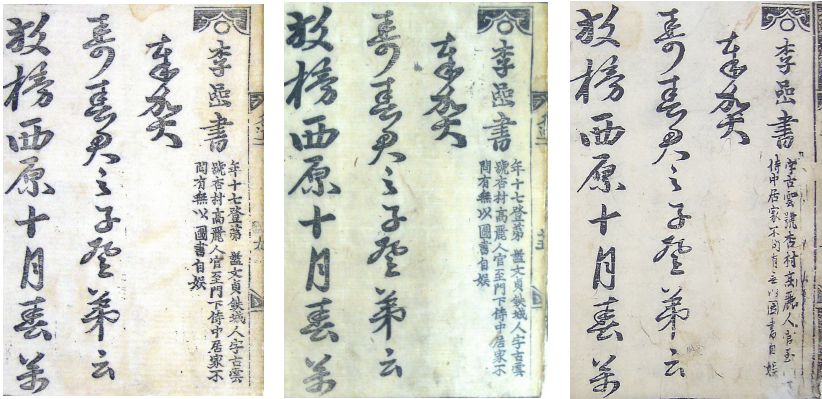 李嵒書
年十七登第 諡文貞鐵城人字古雲
號杏村高麗人官至門下侍中居家不
問有無以圖書自娛
奉賀
壽春君之子登第云
放榜西原十月春
李嵒書
年十七登第 諡文貞鐵城人字古雲
號杏村高麗人官至門下侍中居家不
問有無以圖書自娛
奉賀
壽春君之子登第云
放榜西原十月春
李嵒書
字古雲號杏村高麗人官至門下
侍中居家不問有無以圖書自娛
奉賀
壽春君之子登第云
放榜西原十月春